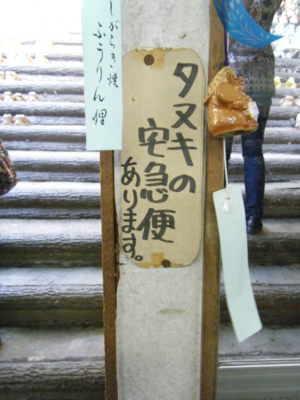 しがらき焼
ぶうりん狸
タヌキの
宅急便
あります。